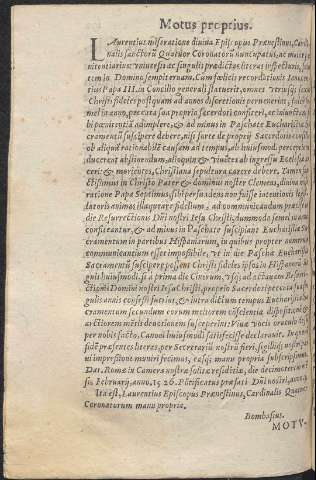 Motus proprius.
LAurentius miseratione diuina Episcopus Prænestinus, Cardi-
nalis sanctorū Quatuor Coronatorū nuncupatus, ac maior pœ-
nitentiarius: vniuersis ac singulis prædictas literas inspecturis, salu-
tem in Domino sempiternam. Cum fœlicis recordationis Innocen-
tius Papa III. in Concilio generali statuerit, omnes vtriusq; sexus
Christi fideles postquam ad annos discretionis peruenerint, saltem se-
mel in anno, peccata sua proprio Sacerdoti confiteri, ac iniunctam si-
bi pœnitentiā adimplere, & ad minus in Paschate Eucharistiæ Sa-
cramentū suscipere debere, nisi forte de proprij Sacerdotis consilio
ob aliquā rationabilē causam ad tempus, ab huiusmodi perceptione
ducerent abstinendum, alioquin & viuētes ab ingressu Ecclesiæ ar-
ceri: & morientes, Christiana sepultura carere debere. Tamen san-
ctissimus in Christo Pater & dominus noster Clemens, diuina pro-
Papa Septimus, si bene
animos fidelium, ad communicandum
die Resurrectionis Dñi nostri Iesu Christi, dummodo semel in anno
confiteantur, & ad minus in Paschate suscipiant Eucharistiæ Sa-
cramentum in partibus Hispaniarum, in quibus propter
communicantium esset impossibile, vt in die Paschæ Eucharistiæ
Sacramentū suscipere possent Christi fideles ipsos in Hispaniarū re-
gnis huiusmodi, q̃ a prima die Cinerum, vsq; ad octauas Resurre-
ctiōis Domini nostri Iesu Christi, proprio Sacerdoti peccata sua sin-
gulis anis confessi fuerint, & intra dictum tempus Eucharistiæ Sa-
cramentum secundum eorum meliorem conscientiæ dispositionē, &
arctiorem mētis deuotionem susceperint: Viuæ vocis oraculo
per nobis facto, Canoni huiusmodi satisfecisse declarauit. In quorū
fidē præsentes literas, per Secretariū nostrū fieri, sigilliq; nostri
ui impressione muniri fecimus, easq; manu propria subscripsimus.
Dat. Romæ in Camera nostræ solitæ residētiæ, die decimatertia
Februarij, anno. 1526. Pōtificatus præfati Dñi nostri, anno
Ita est, Laurentius Episcopus Prænestinus, Cardinalis Quatuor
Coronatorum manu propria.
Bombasius.
MOTV-